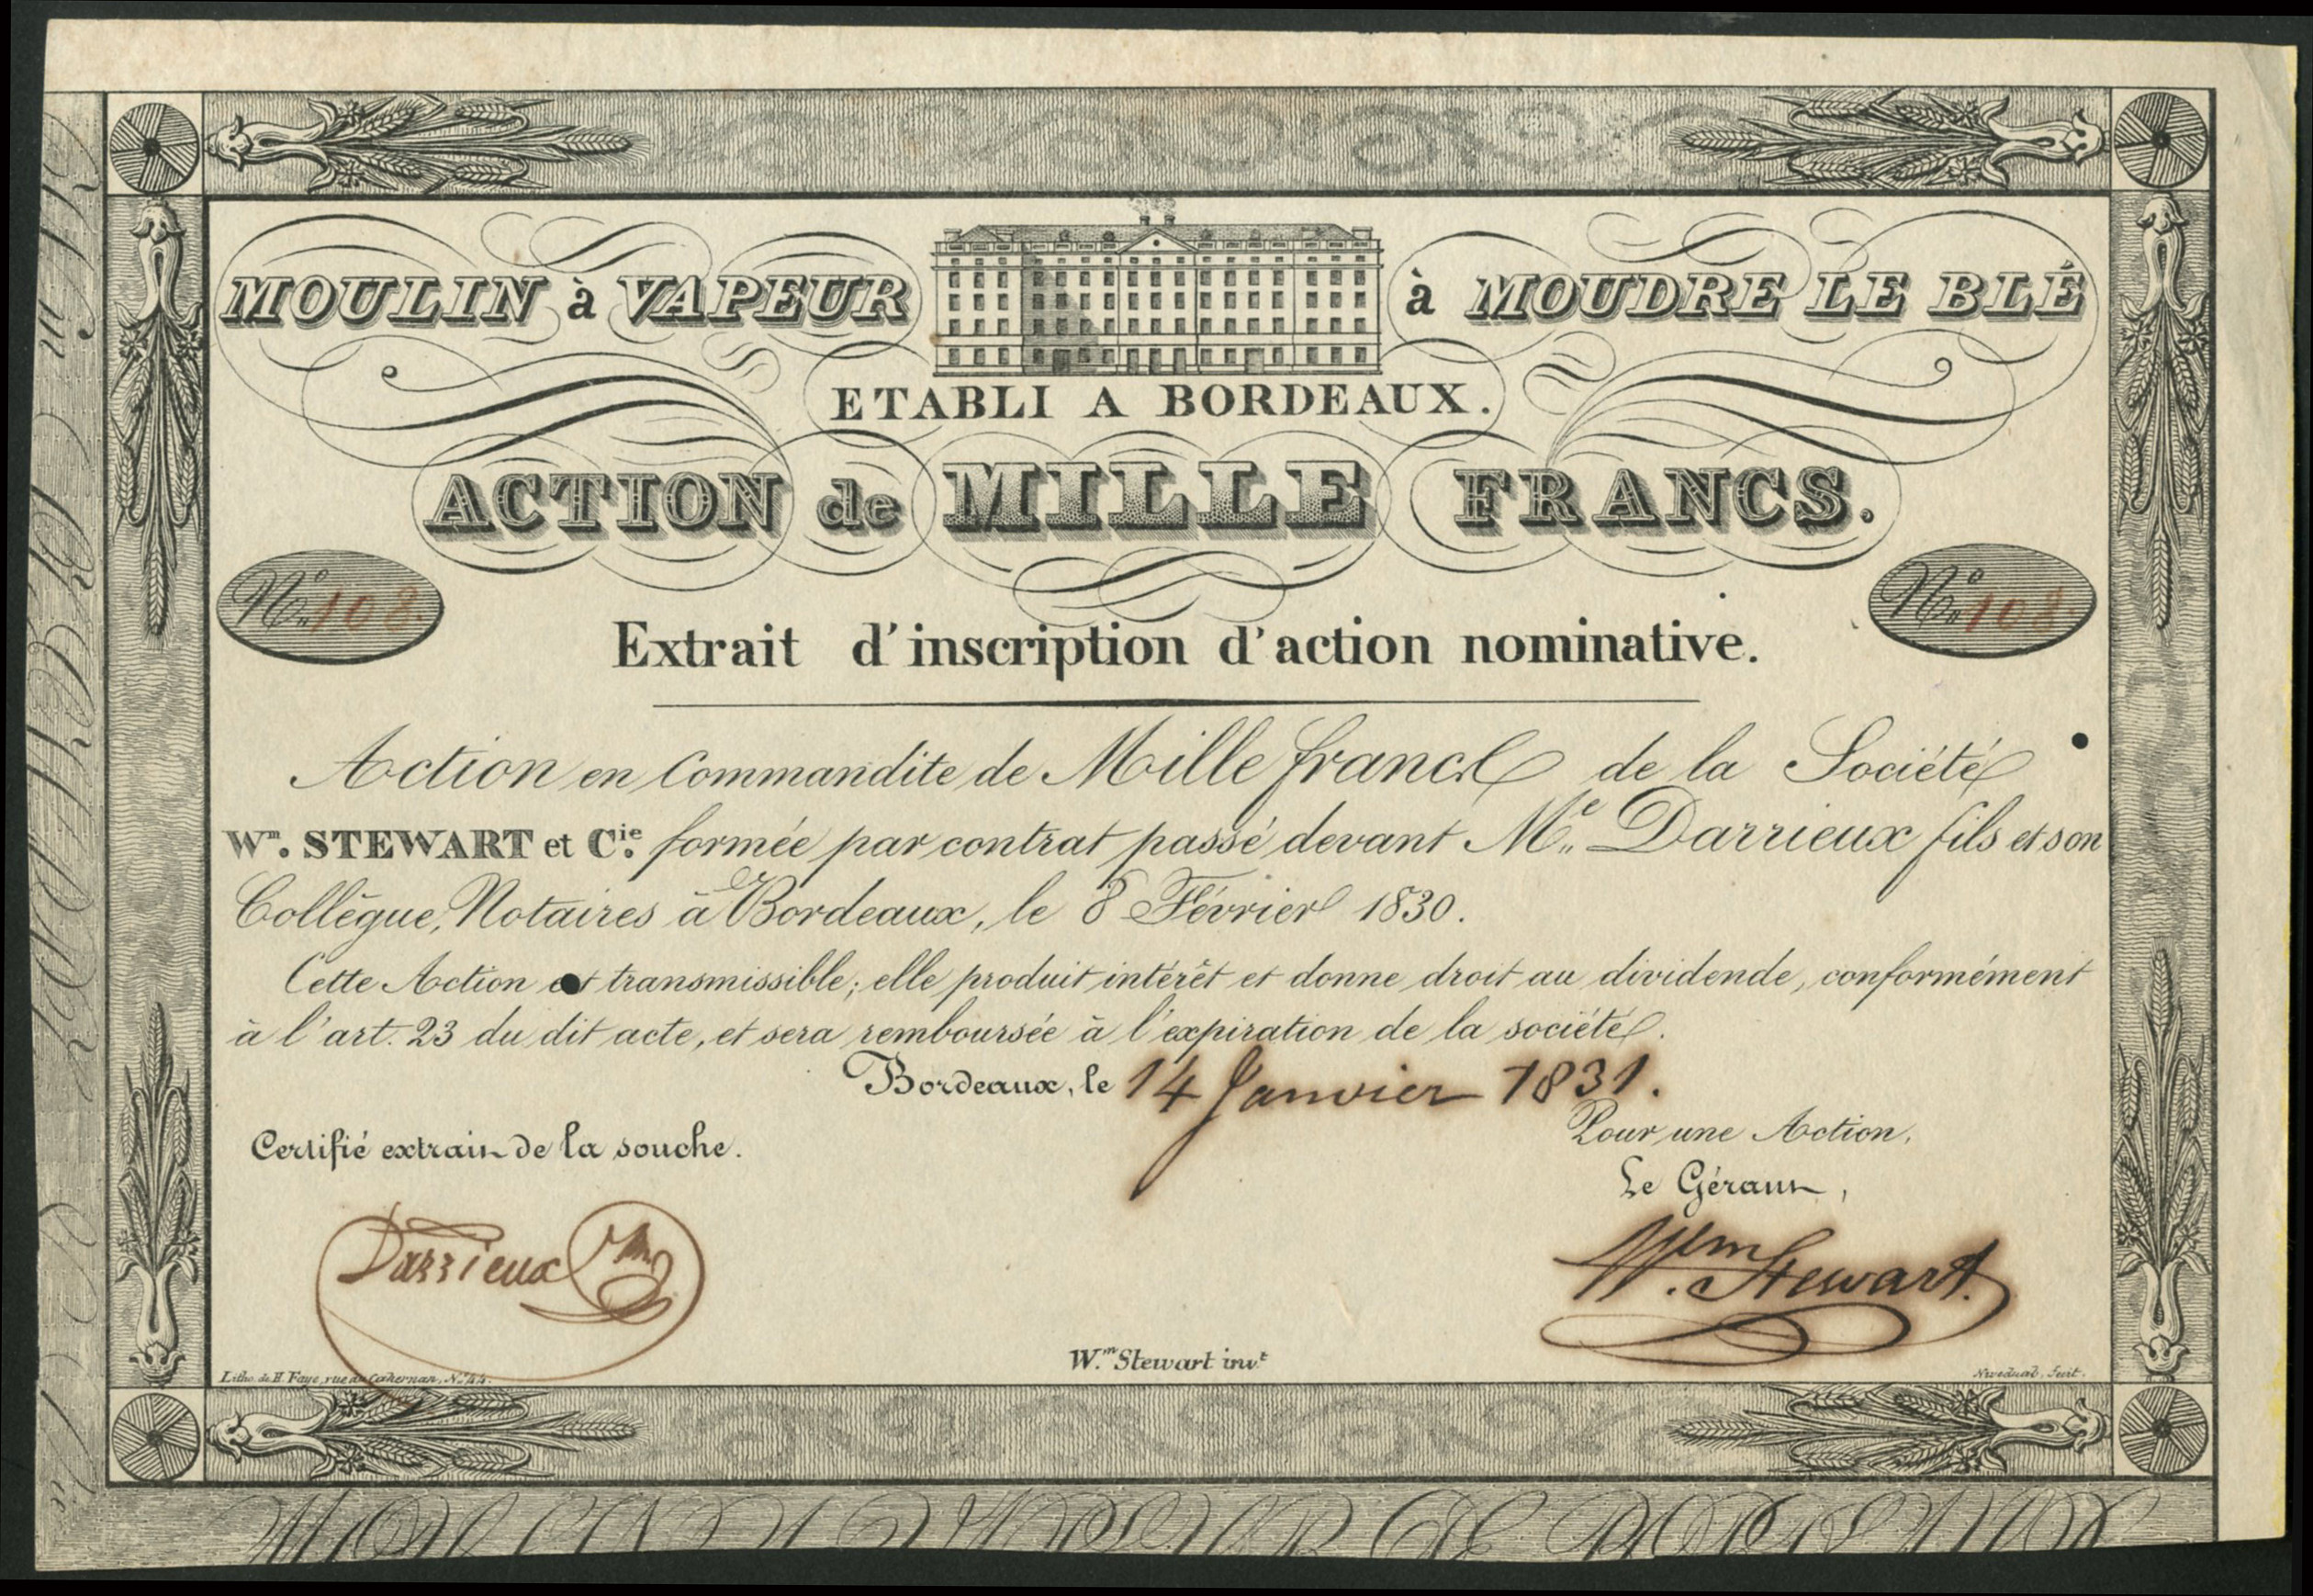 MOULIN à VAPEUR à MOUDRE LE BLÉ
ETABLI A BORDEAUX.
ACTION de MILLE FRANCS.
N.º 108. N.º 108.
Extrait d'inscription d'action nominative.
Action en Commandite de Mille francs de la Société
Wm. STEWART et Cie. formée par contrat passé devant Me. Darrieux fils et son
Collègue, Notaires à Bordeaux, le 8 Février 1830.
Cette Action est transmissible; elle produit intérêt et donne droit au dividende, conformément
à l'art. 23 du dit acte, et sera remboursée à l'expiration de la société.
Bordeaux, le 14 Janvier 1831.
Certifié extrait de la souche. Pour une Action,
Le Gérant,
Darrieux Wm. Stewart.
W.m Stewart inv.t
Litho. de H. Faye, rue du Cahernan, N.º 44.
fecit.